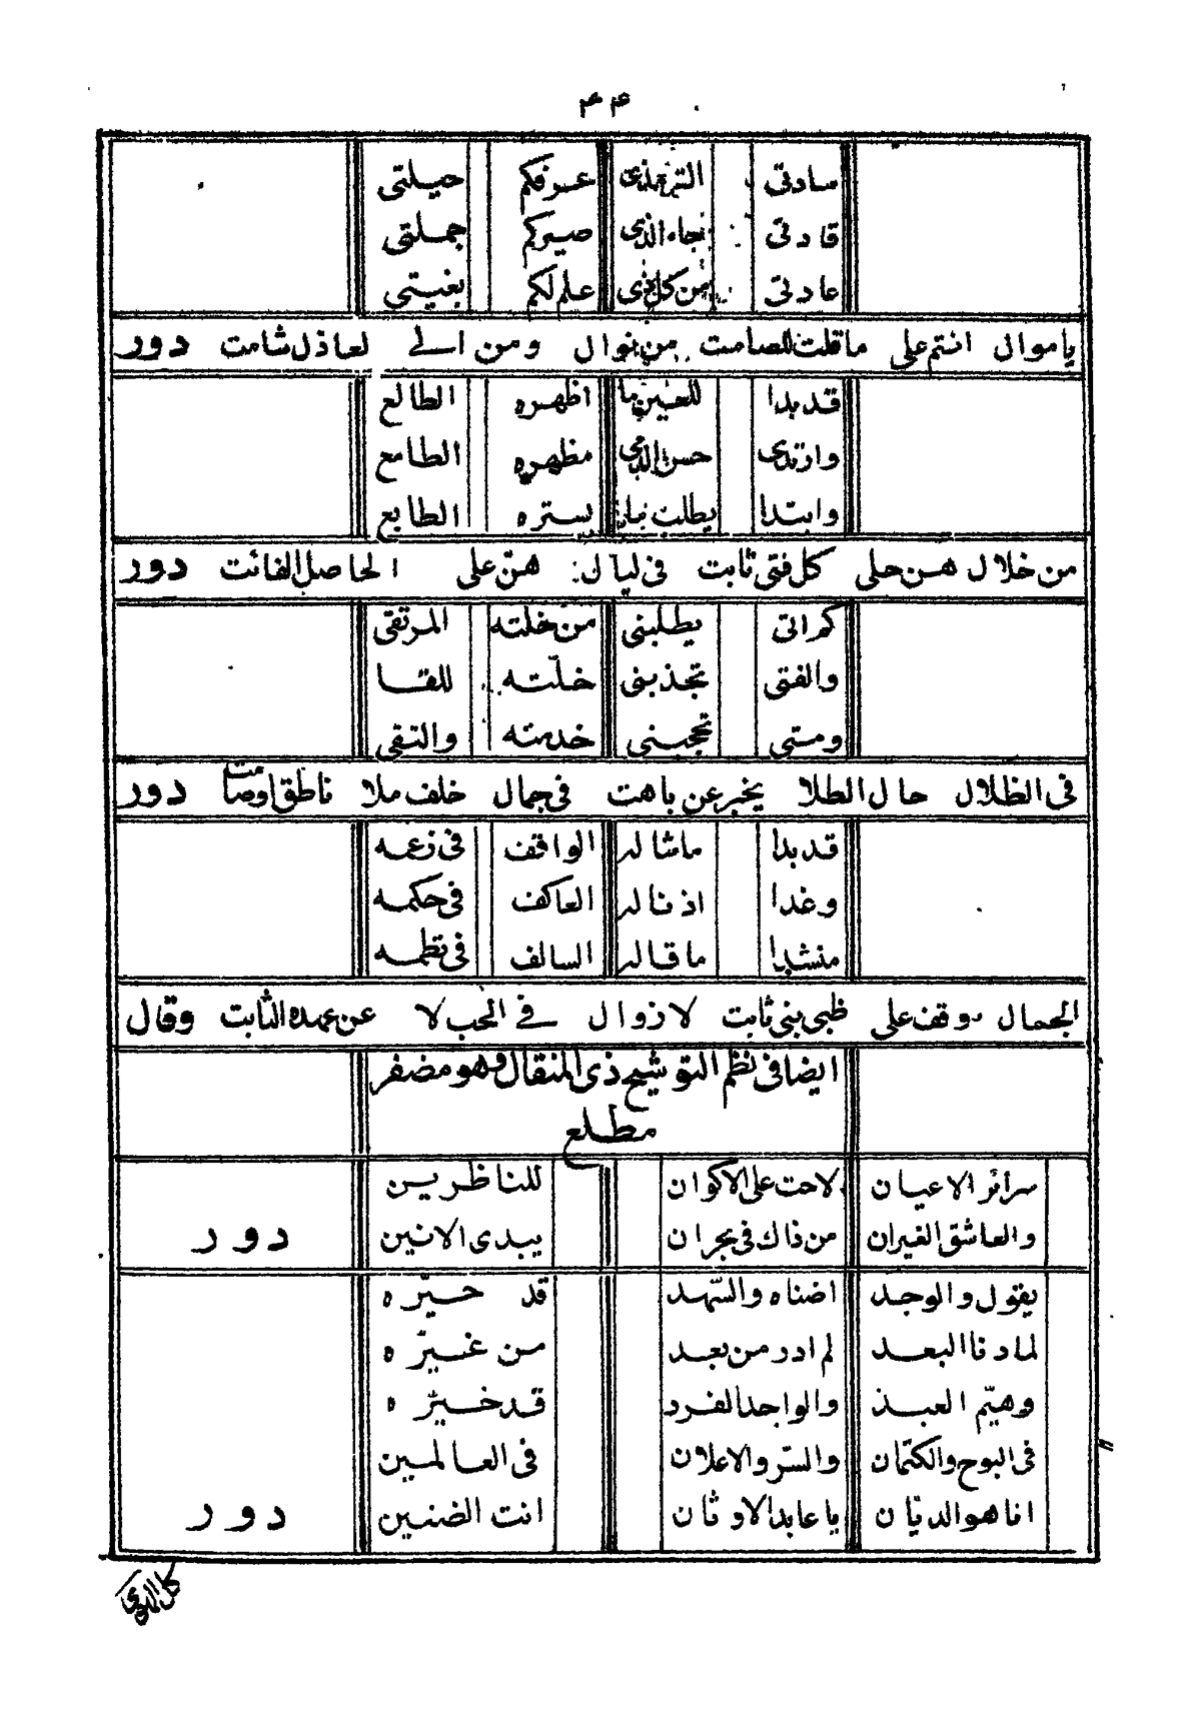 ٤٤
سادتى الترمذى عرفكم حيلتى
قادتى نجاء الذى صيركم جملتى
عادتى من كل بذى علم لكم بغيتى
يا موال انتم على ما قلت للصامت من نوال ومن الى لعاذل شامت دور
قد بدا للعين ما اظهره الطالع
وارتدى حسن الذى مظهره الطامع
وابتدا يطلب يستره الطابع
من خلال هن حلى كل فتى ثابت فى ليال هن على الحاصل الفائت دور
كم اتى يطلبنى من خلته المرتقى
والفتى تجذبنى خلّته للقا
ومتى تحجبنى خدمته والتقى
فى الظلال حال الطلا يخبر عن باهت فى جمال خلف ملا ناطق او صامت دور
قد بدا ماشا له الواقف فى زعمه
وغدا اذ نا له العاكف فى حكمه
منشدا ما قاله السالف فى نظمه
الجمال وقف على ظبى بنى ثابت لا زوال فى الحب لا عن عهده الثابت وقال
ايضا فى نظم التوشيح ذى المنقال وهو مضفر
مطلع
سرائر الاعيان لاحت على الاكوان للناظرين
والعاشق الغيران من ذاك فى بحران يبدى الانين دور
يقول والوجد اضناه والسّهد قد حيّره
لما دنا البعد لم ادر من بعد من غيّره
وهيّم العبد والواحد الفرد قد خيّره
فى البوح والكتمان والسّر والاعلان فى العالمين
انا هو الديّان يا عابد الاوثان انت الضنين دور
كل الهوى